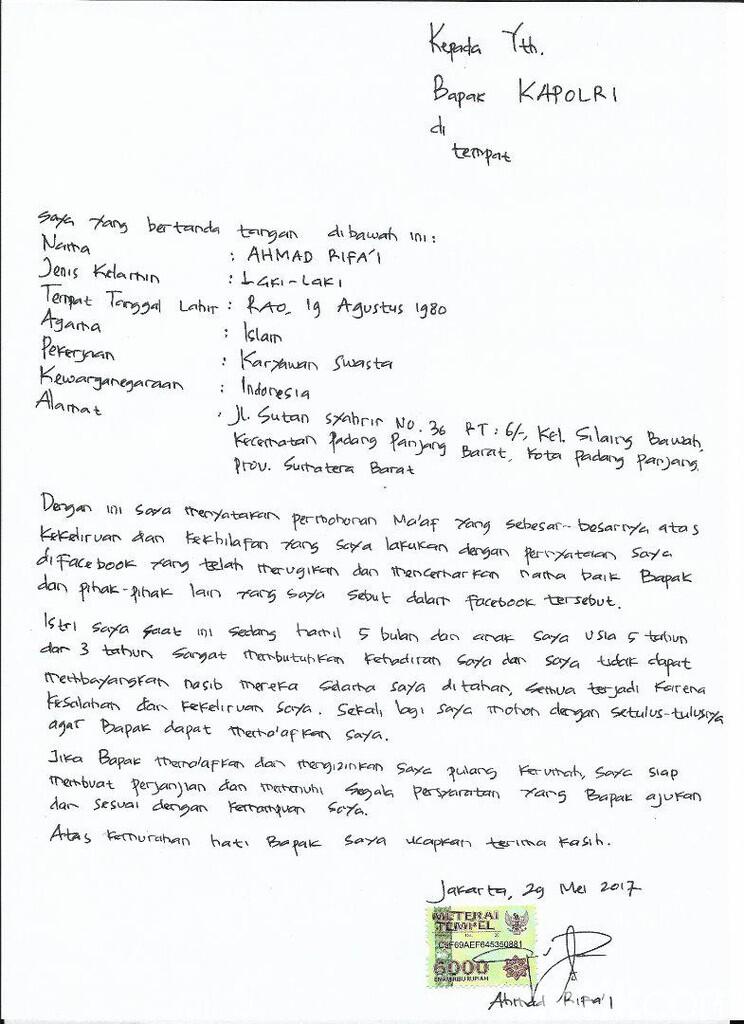 Kepada Yth.
Bapak KAPOLRI
di
tempat
Saya yang bertanda tangan dibawah ini :
Nama : AHMAD RIFA'I
Jenis Kelamin : Laki-Laki
Tempat Tanggal Lahir : RAO, 19 Agustus 1980
Agama : Islam
Pekerjaan : Karyawan Swasta
Kewarganegaraan : Indonesia
Alamat : Jl. Sutan Syahrir No. 36 RT : 6/-, Kel. Silaing Bawah,
Kecamatan Padang Panjang Barat, Kota Padang Panjang,
Prov. Sumatera Barat
Dengan ini saya menyatakan permohonan Ma'af yang sebesar-besarnya atas
kekeliruan dan kekhilafan yang saya lakukan dengan pernyataan saya
di Facebook yang telah merugikan dan mencemarkan nama baik Bapak
dan pihak-pihak lain yang saya sebut dalam Facebook tersebut.
Istri saya saat ini sedang hamil 5 bulan dan anak saya usia 5 tahun
dan 3 tahun sangat membutuhkan kehadiran saya dan saya tidak dapat
membayangkan nasib mereka selama saya ditahan, semua terjadi karena
kesalahan dan kekeliruan saya. Sekali lagi saya mohon dengan setulus-tulusnya
agar Bapak dapat mema'afkan saya.
Jika Bapak mema'afkan dan mengizinkan saya pulang kerumah, saya siap
membuat perjanjian dan memenuhi segala persyaratan yang Bapak ajukan
dan sesuai dengan kemampuan saya.
Atas kemurahan hati Bapak saya ucapkan terima kasih.
Jakarta, 29 Mei 2017
METERAI
TEMPEL
C5F69AEF645350881
6000
ENAM RIBU RUPIAH
Ahmad Rifa'i